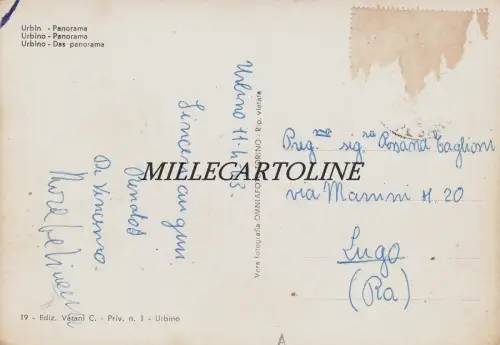 Urbin - Panorama
Urbino - Panorama
Urbino - Das panorama
Urbino 11-4-
Sinceri auguri
Renato
Di Vincenzo
Vera fotografia OMNIAFOTO TORINO - Rip. vietata
Preg.ma sig.ra Rosana Caglioni
via Manini N. 20
Lugo
(Ra)
MILLECARTOLINE
19 - Ediz. Vérani C. - Priv. n. 1 - Urbino
A